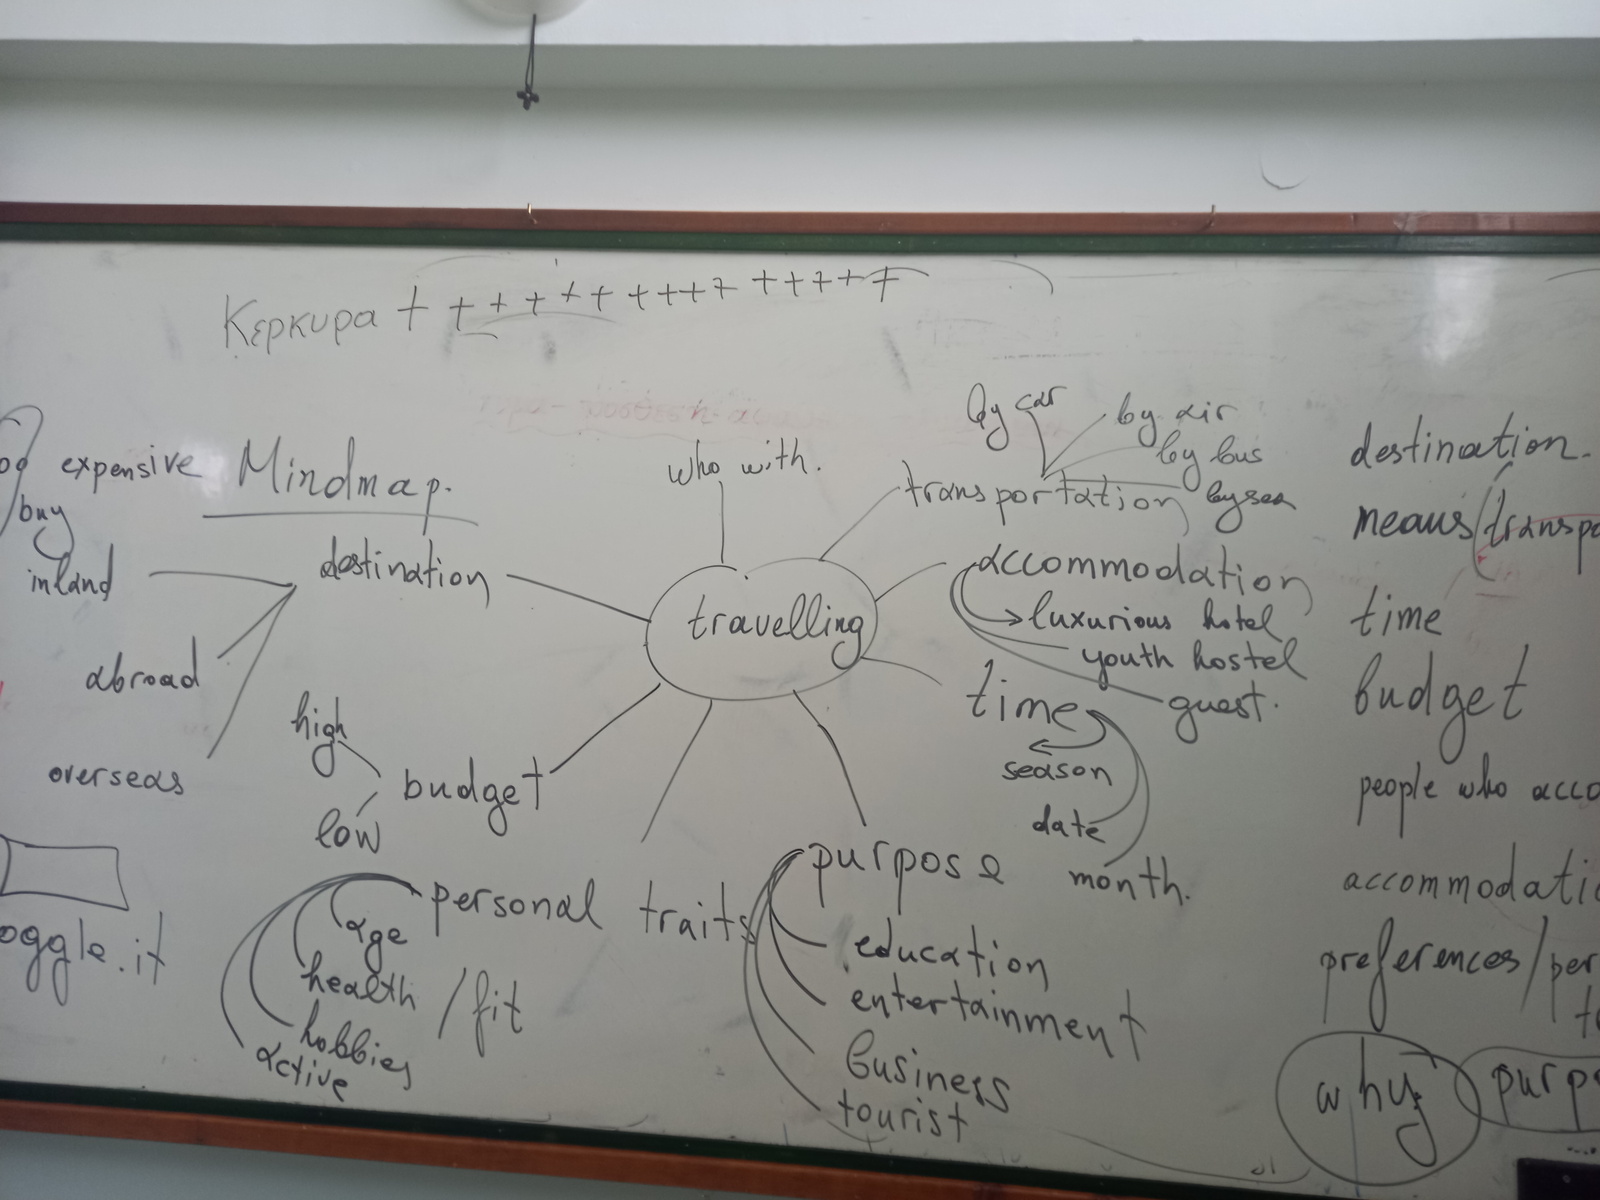 Κερκυρα + + + + + + + + + + + + + + +
expensive
buy
Mindmap.
destination
inland
abroad
overseas
travelling
who with.
transportation
by car
by air
by bus
by sea
accommodation
luxurious hotel
youth hostel
guest.
time
season
date
month.
budget
high
low
personal traits
age
health / fit
hobbies
active
purpose
education
entertainment
business
tourist
oggle.it
destination.
means/transpo
time
budget
people who acco
accommodatio
preferences/per
why
purpo